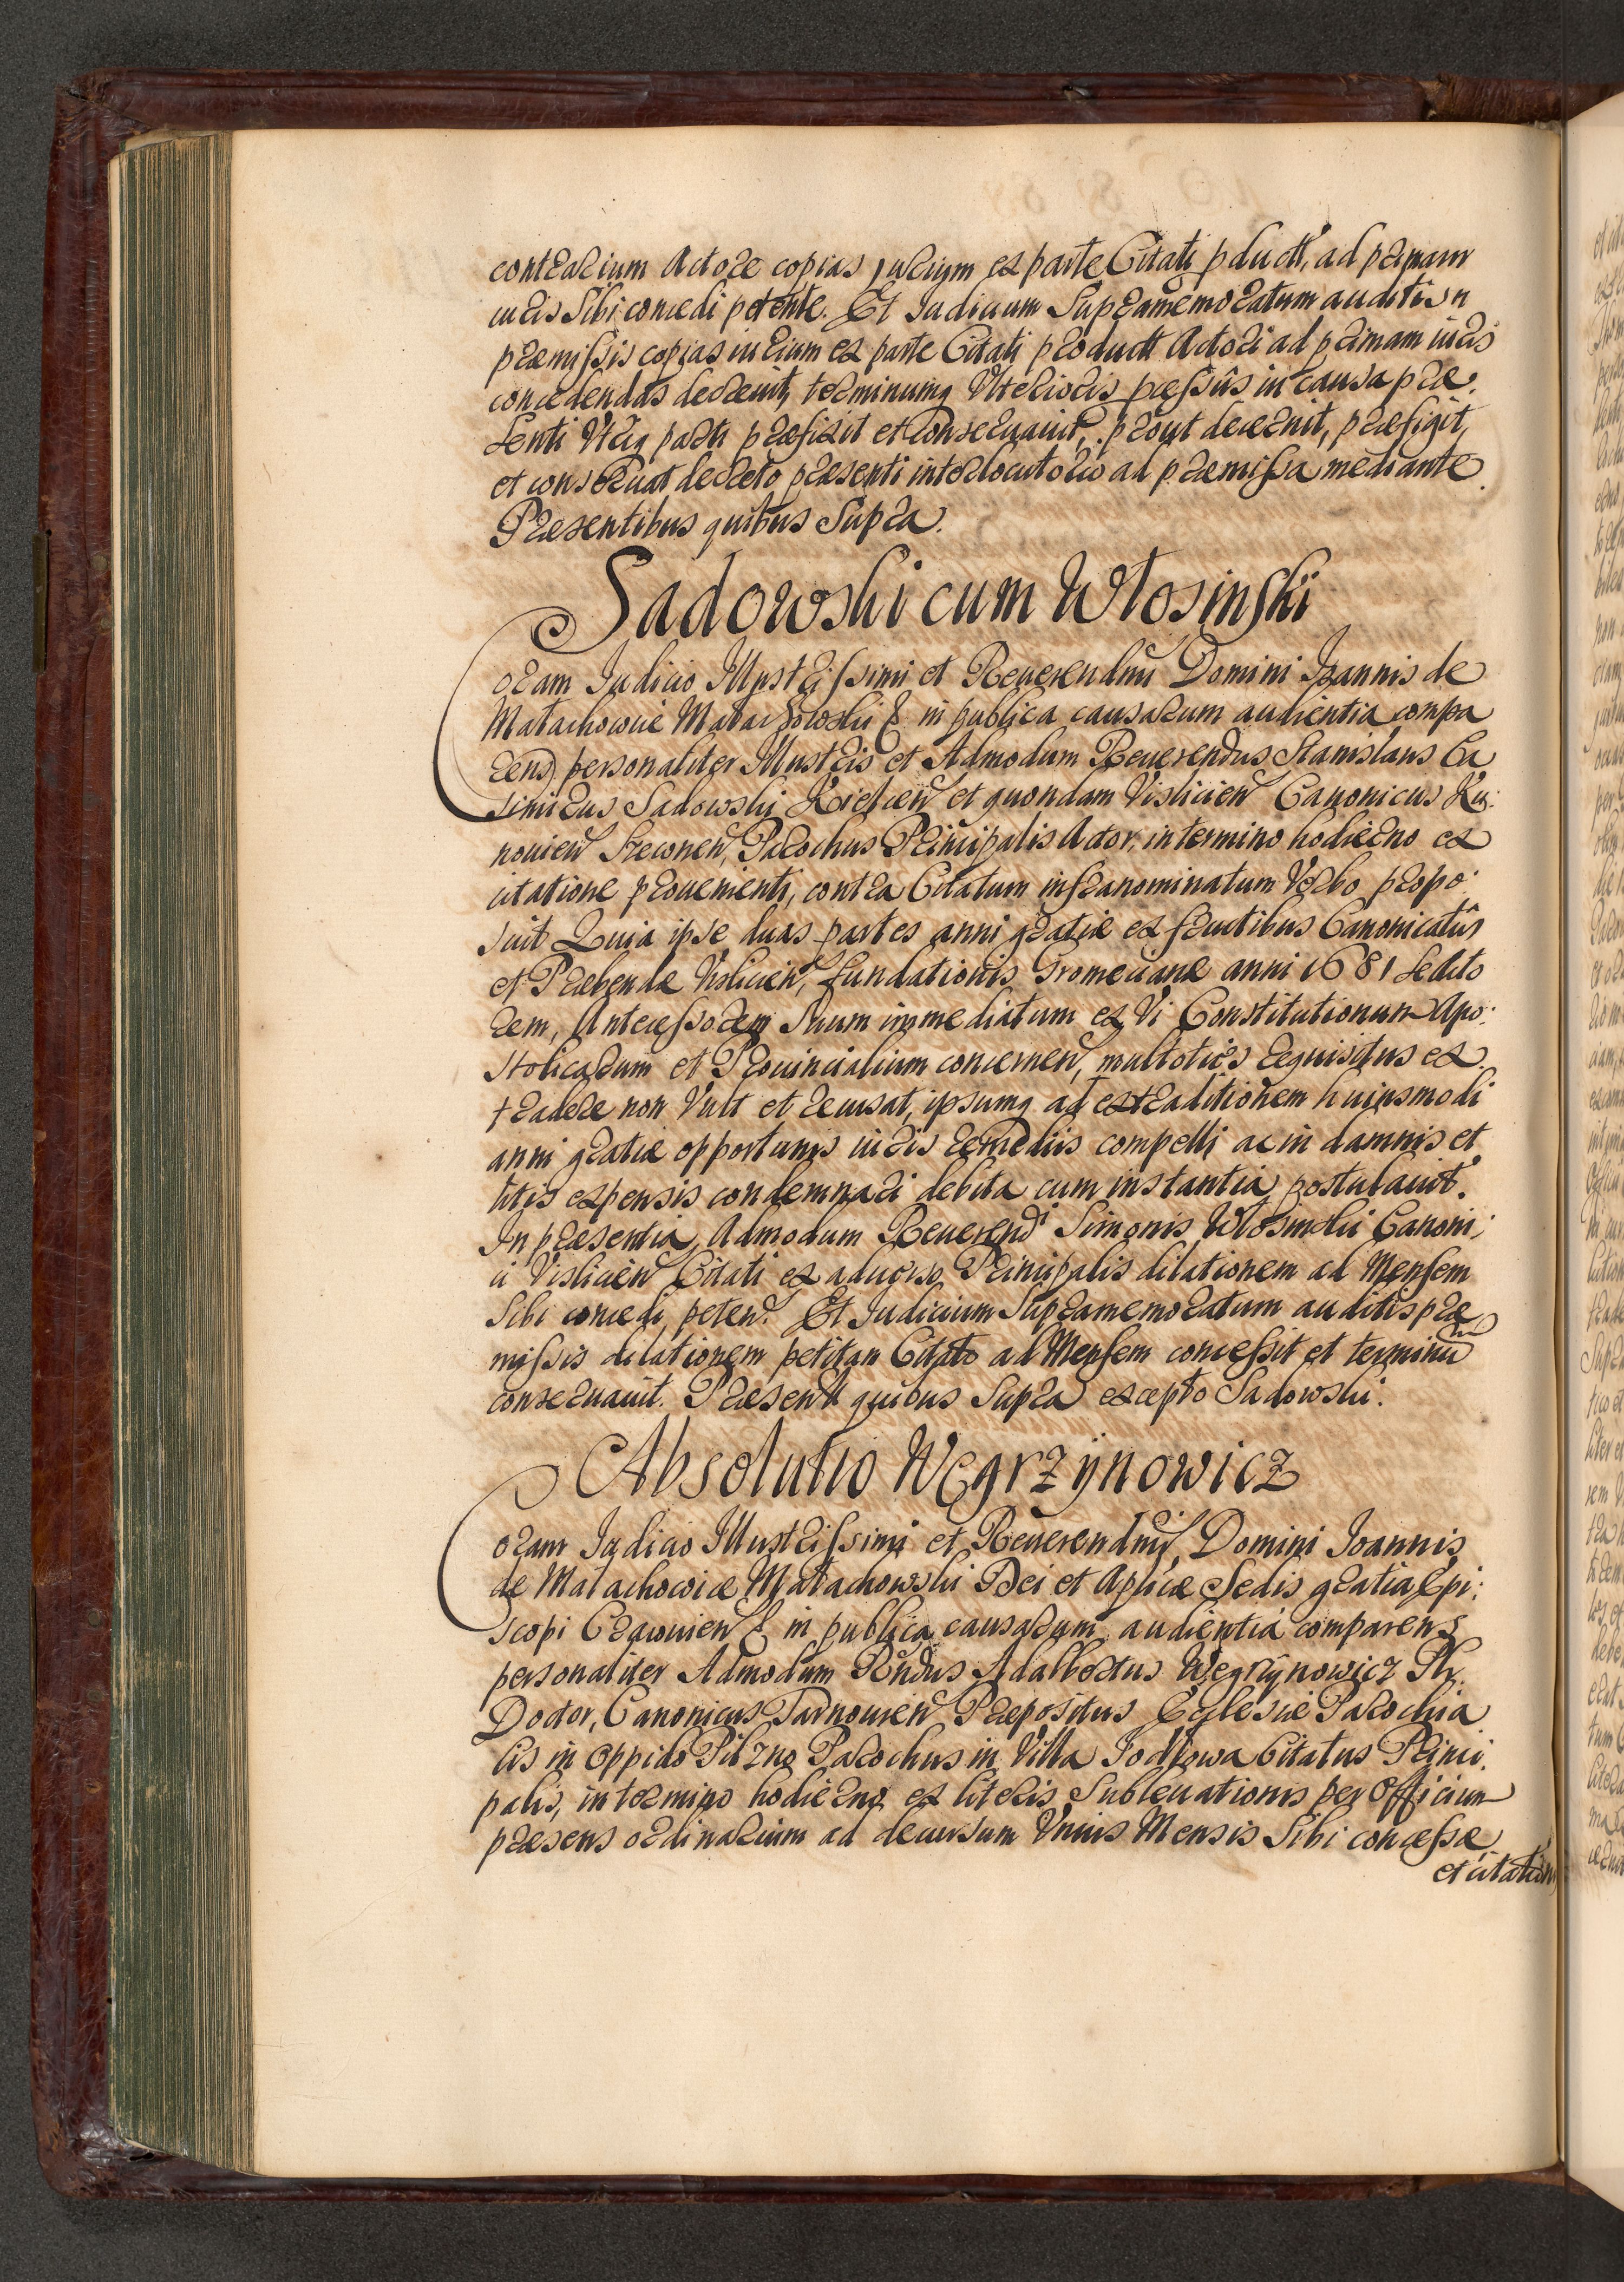 contrarium Actore copias jurium ex parte Citati pductt, ad primam
iuris Sibi concedi petente. Et Iudicium Supramemoratum auditis
præmissis copias iurium ex parte Citati productt Actori ad primam iuris
concedendas decrevit, terminumq Vlterioris pcessûs in causa præ.
senti Vtriq parti præfixit et conservauit, prout decernit, præfigit,
et conservat decreto præsenti interlocutorio ad præmissa mediante
Præsentibus quibus Supra.
Sadowski cum Włosinski
Coram Iudicio Illustrissimi et Reuerendmi Domini Ioannis de
Małachowice Małachowski & in publica causarum audientia compa
rens personaliter Illustris et Admodum Reuerendus Stanislaus Ca
simirus Sadowski Kielcen et quondam Vislicien Canonicus
Parochus Principalis Actor, in termino hodierno ex
citatione prouenienti, contra Citatum infranominatum Verbo propo:
suit Quia ipse duas partes anni gratiæ ex fructibus Canonicatûs
et Præbendæ Vislicien, fundationis Gromecianæ anni 1681 Sedito
rem, Antecessorem Suum immediatum ex Vi Constitutionum Apo:
stolicarum et Prouincialium concernen, multoties requisitus ex
tradere non Vult et recusat, ipsumq ad extraditionem huiusmodi
anni gratiæ opportunis iuris remediis compelli ac in damnis et
litis expensis condemnari debita cum instantia postulauit.
In præsentia Admodum Reuerendi Simonis Włosinski Canoni:
ci Vislicien Citati ex aduerso Principalis dilationem ad Mensem
Sibi concedi peten. Et Iudicium Supramemoratum auditis præ
missis dilationem petitam Citato ad Mensem concessit et terminu
conseruauit. Præsentt quibus Supra excepto Sadowski.
Absolutio Wegrzÿnowicz
Coram Iudicio Illustrissimi et Reuerendmi Domini Ioannis
de Małachowice Małachowski Dei et Aplicæ Sedis gratia Epi:
scopi Cracouien & in publica causarum audientia comparens
personaliter Admodum Rndus Adalbertus Wegrzÿnowicz Ph
Doctor, Canonicus Tarnouien Præpositus Ecclesiæ Parochia
lis in Oppido Pilzno Parochus in Villa Jodłowa Citatus Princi:
palis, in termino hodierno ex literis Subleuationis per Officium
præsens ordinarium ad decursum Vnius Mensis Sibi concessæ
et citation